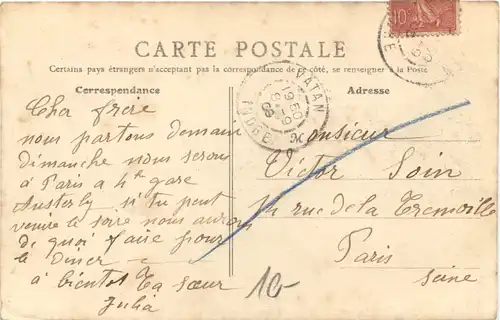 CARTE POSTALE
Certains pays étrangers n'acceptant pas la correspondance de ce côté, se renseigner à la Poste
Correspondance
Adresse
Cher frère
nous partons demain
dimanche nous serons
à Paris a 4h gare
Austerly si tu peut
venire le soire nous aurons
de quoi faire pour
le diner
à bientot Ta sœur
Julia
Monsieur
Victor Soin
14 rue de la Tremoille
Paris
Seine
10-
10
MATAN
19 50